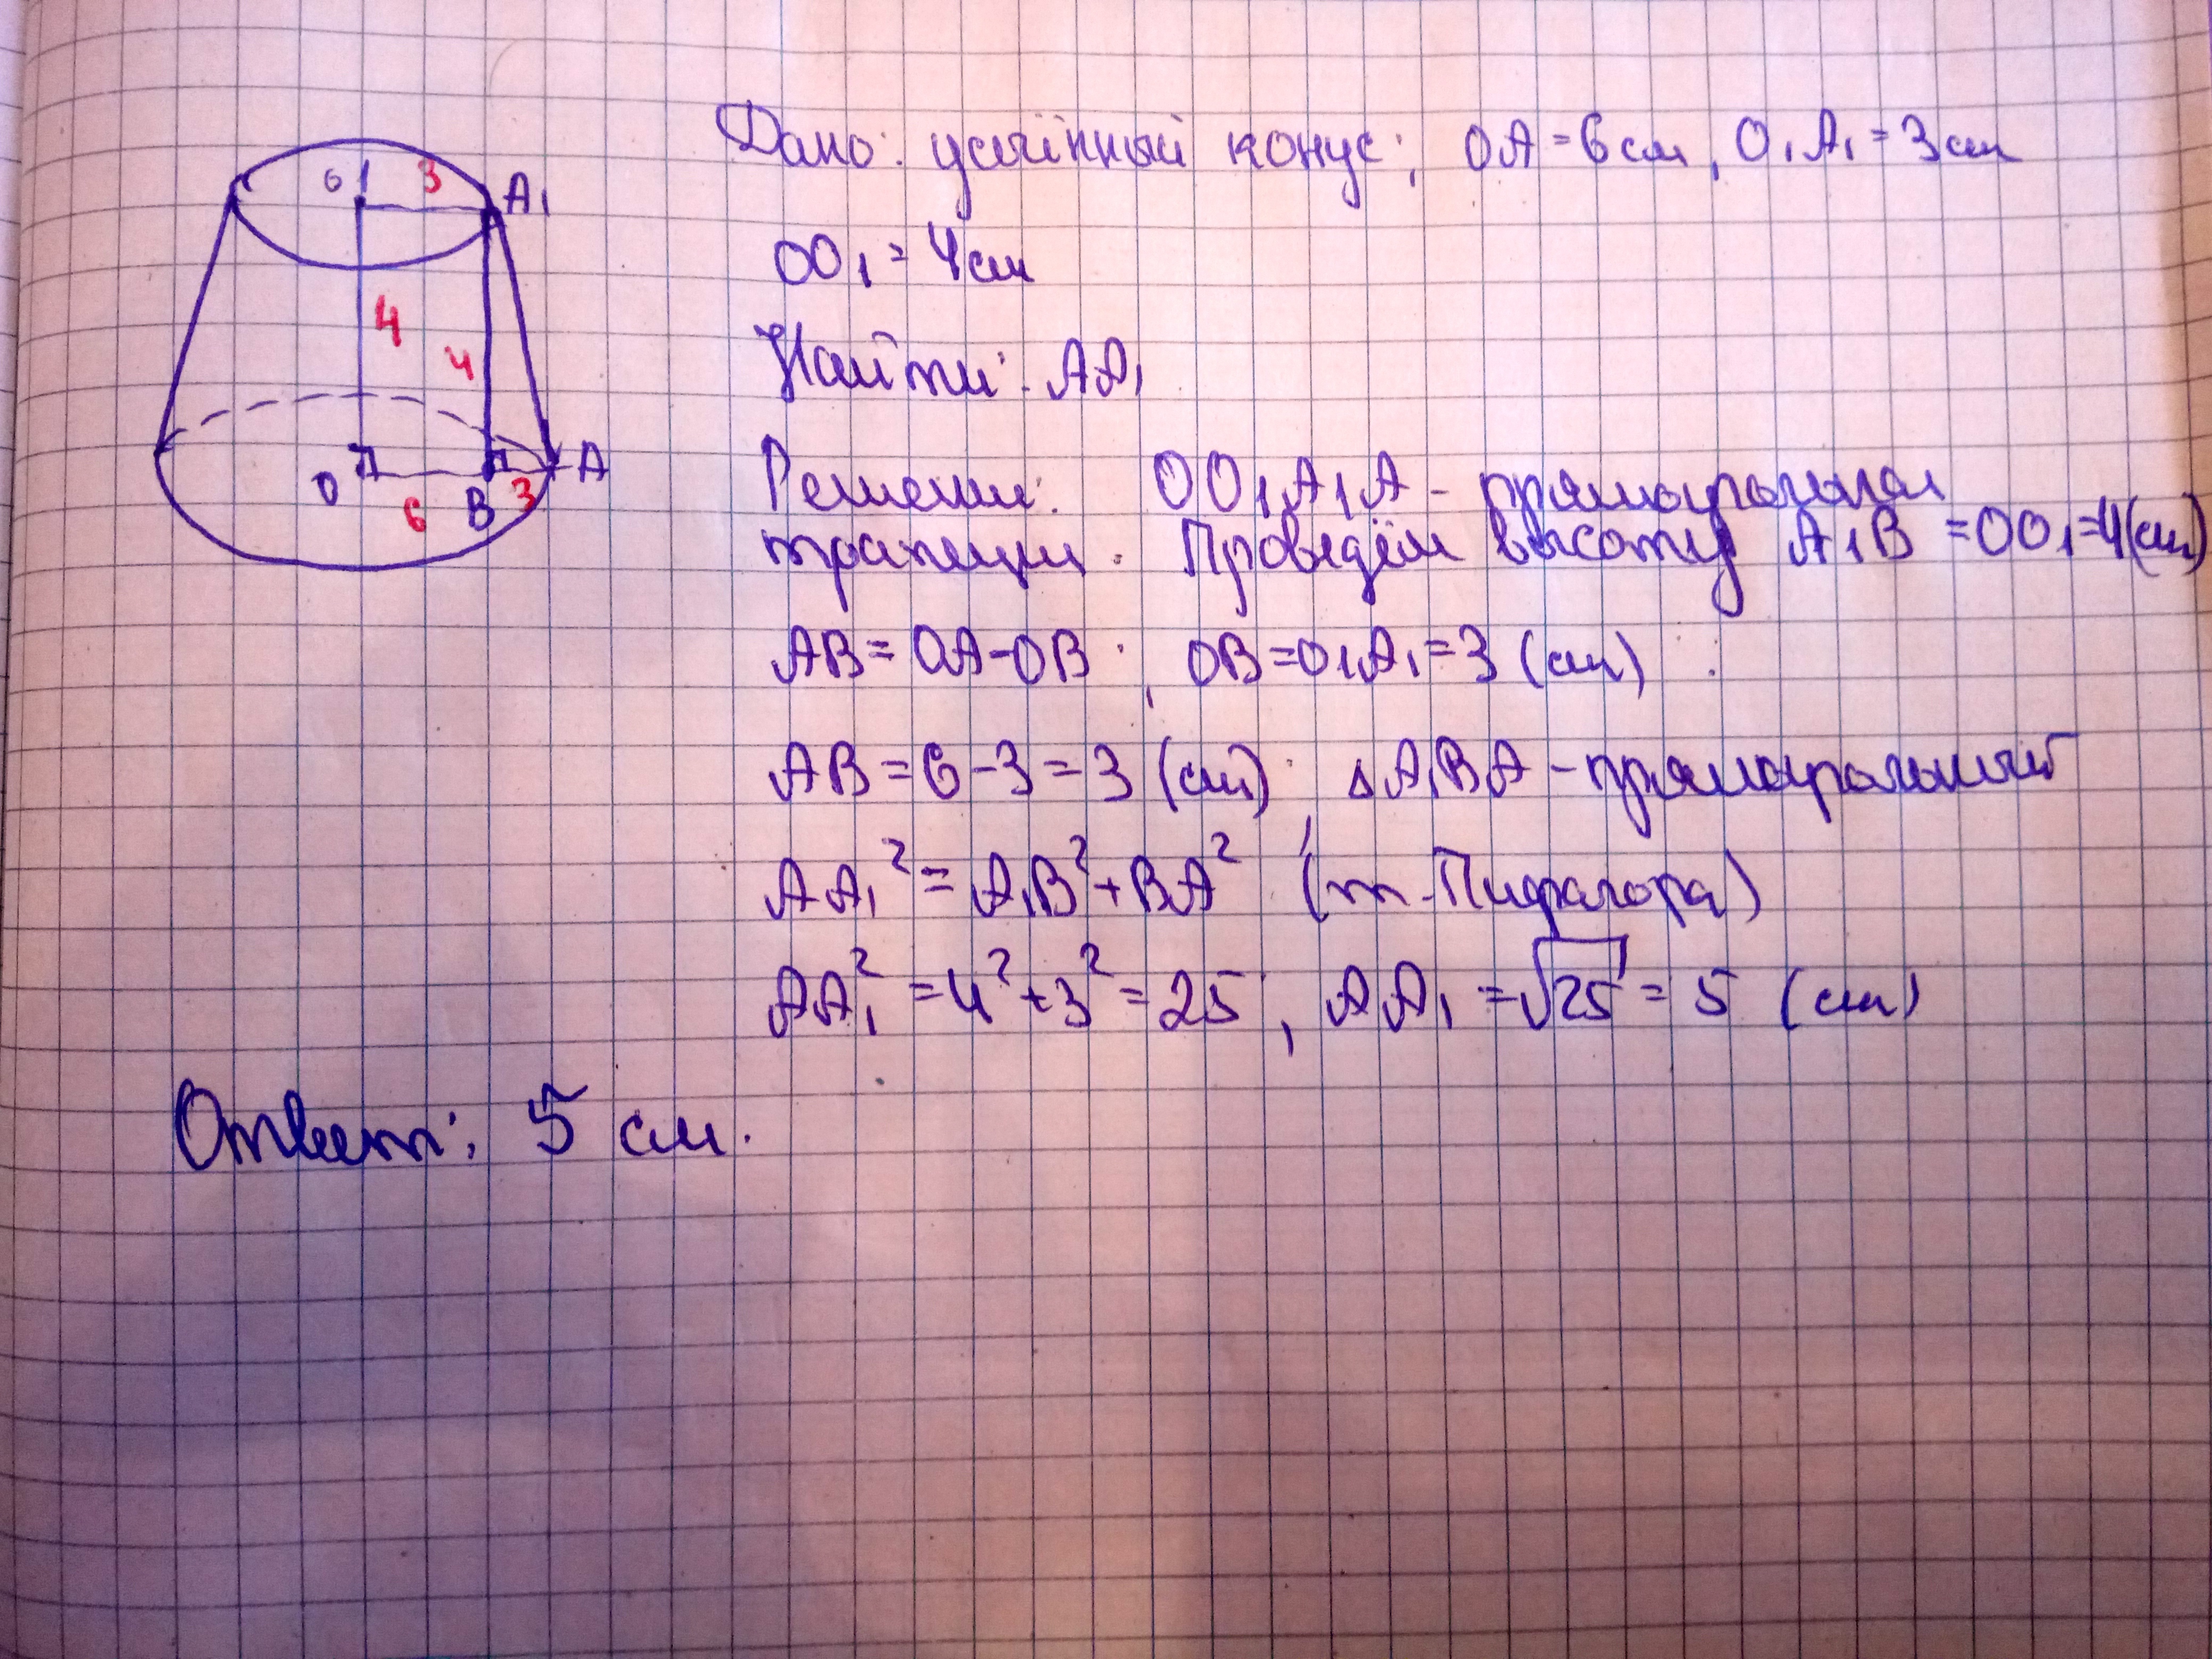 Дано: усечённый конус; OA = 6 см, O₁A₁ = 3 см
OO₁ = 4 см
Найти: AA₁
Решение: OO₁A₁A - прямоугольная
трапеция. Проведём высоту A₁B = OO₁ = 4 (см)
AB = OA - OB; OB = O₁A₁ = 3 (см)
AB = 6 - 3 = 3 (см); △A₁BA - прямоугольный
AA₁² = A₁B² + BA² (т. Пифагора)
AA₁² = 4² + 3² = 25; AA₁ = √25 = 5 (см)
Ответ: 5 см.
O1 3 A₁
4
4
O 6 B 3 A